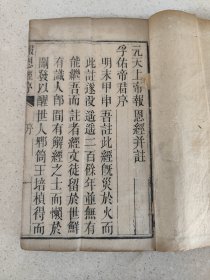 元天上帝報恩經并註
孚佑帝君序
明末甲申吾註此經既災於火而
此註遂沒遥遥二百餘年並無有
能繼吾而註者經文徒留於世鮮
有識人即間有解經之士而懶於
闡發以醒世人鄉筒王培楨得而
報恩經序